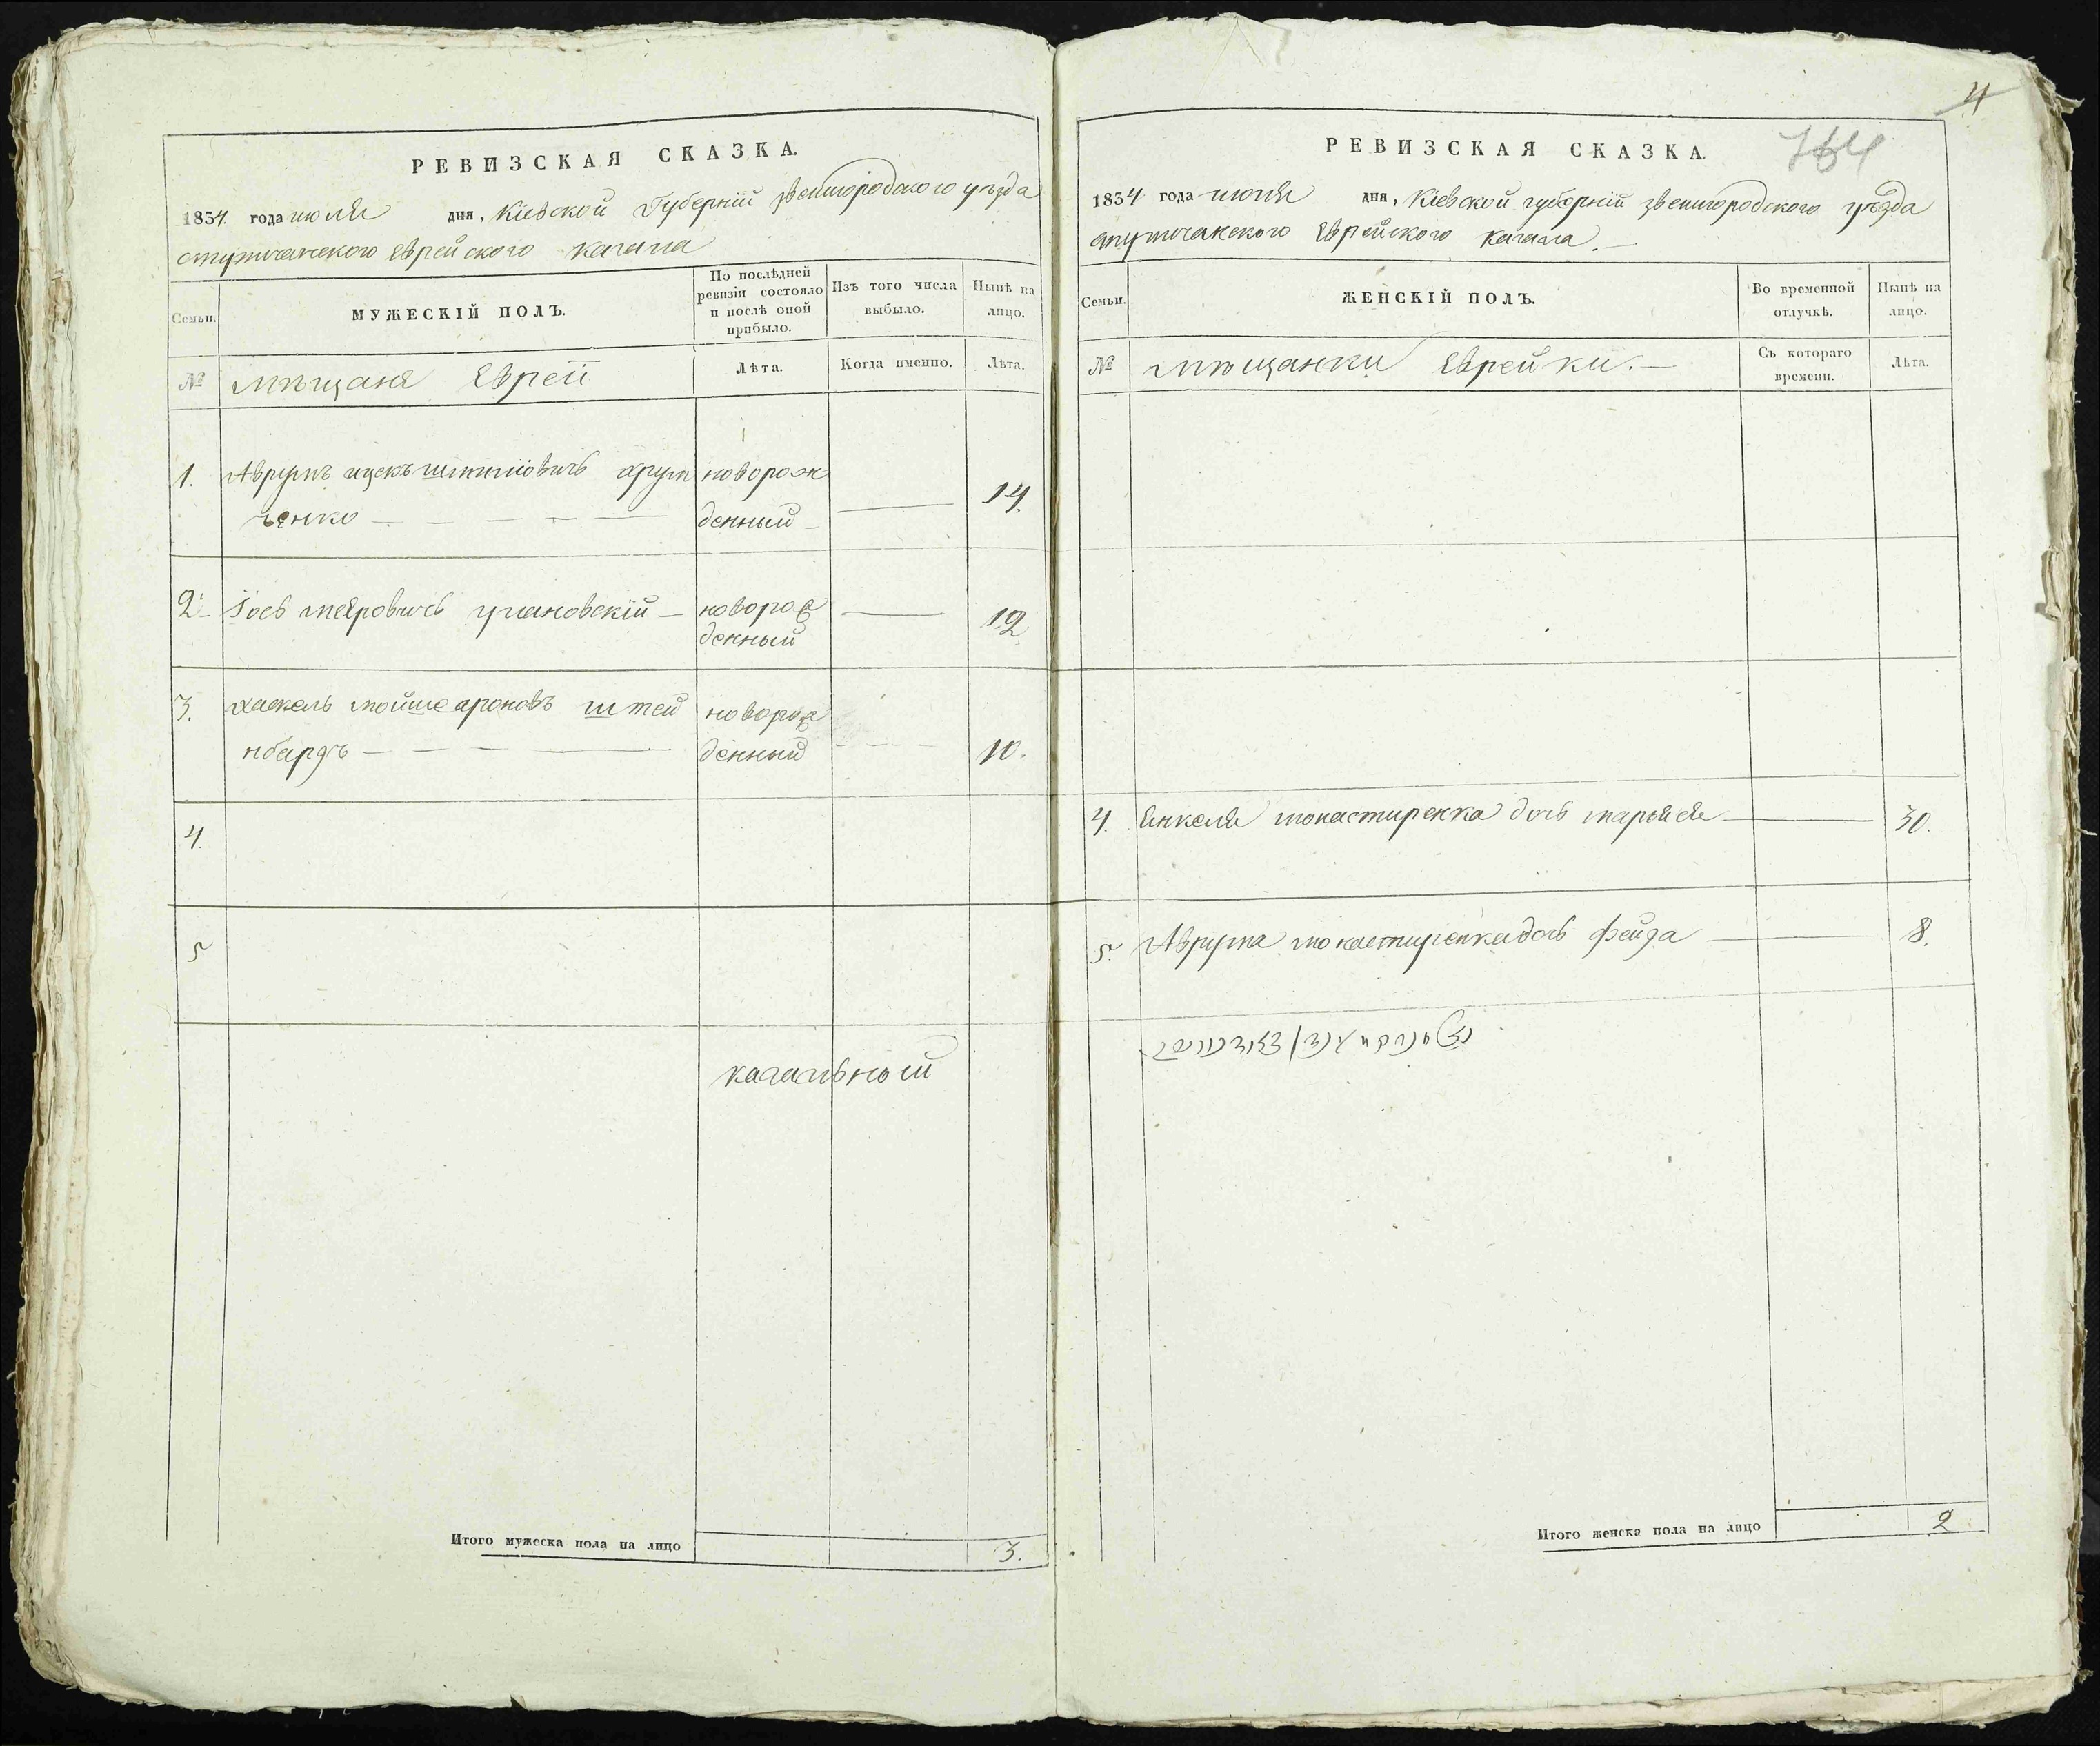 РЕВИЗСКАЯ СКАЗКА.
1834. года июля дня, Кіевской Губерніи звенигородского уѣзда
еврейского кагала
Семьи.
МУЖЕСКІЙ ПОЛЪ.
По послѣдней ревизіи состояло и послѣ оной прибыло.
Изъ того числа выбыло.
Нынѣ на лицо.
№
мѣщане Евреи
Лѣта.
Когда именно.
Лѣта.
1. Аврумъ ицекъ крут новорож
ченко денный 14.
2. Іось мееровичь умановскій новорож 12
денный
3. хаскель мойше ароновъ штей новорож
нбаргъ денный 10.
4.
5
кагальный
Итого мужеска пола на лицо 3.
4
764
РЕВИЗСКАЯ СКАЗКА.
1834 года июля дня, Кіевской губерніи звенигородского уѣзда
Еврейского кагала.
Семьи.
ЖЕНСКІЙ ПОЛЪ.
Во временной отлучкѣ.
Нынѣ на лицо.
№
мѣщанки Еврейки.
Съ котораго времени.
Лѣта.
4. Янкеля монастиренка дочь марьяся 30.
5. Аврума монастиренка дочь фейга 8.
Итого женска пола на лицо 2